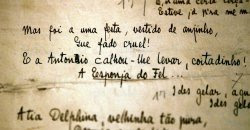 Esteve, já p'ra me m
Mas foi a uma festa, vestido de anjinho,
Que fado cruel!
E a Antonio calhou-lhe levar, coitadinho!
A Esponja do Fel...
Ides gelar, agu
A tia Delphina, velhinha tão pura,
Ides gelar,